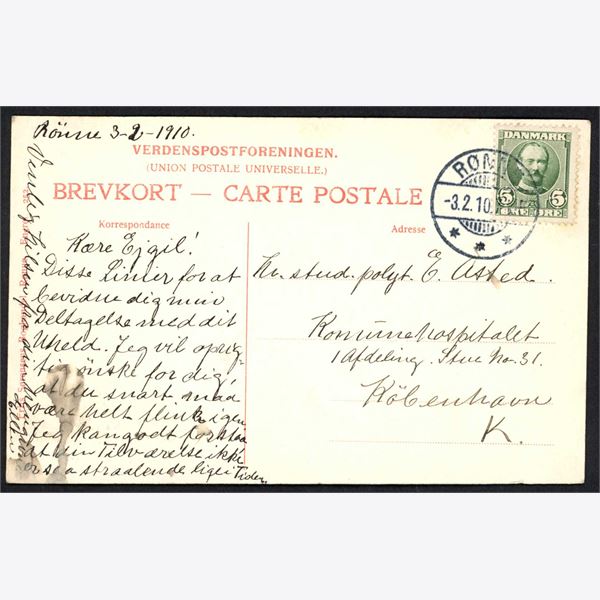 Rönne 3-2-1910.
VERDENSPOSTFORENINGEN.
(UNION POSTALE UNIVERSELLE.)
BREVKORT — CARTE POSTALE
Korrespondance
Adresse
DANMARK
5 5
ØRE ØRE
RØNNE
-3.2.10.
Kære Ejgil!
Disse Linier for at
bevidne dig min
Deltagelse med dit
Uheld. Jeg vil oprig-
tig ønske for dig,
at du snart maa
være helt flink igen
Jeg kan godt forstaa
at din Tilværelse ikke
er saa straalende lige i Tiden
Venlig Hilsen fra
Hr. stud. polyt. E. Asted.
Komunehospitalet
1 Afdeling. Stue No. 31.
København
K.